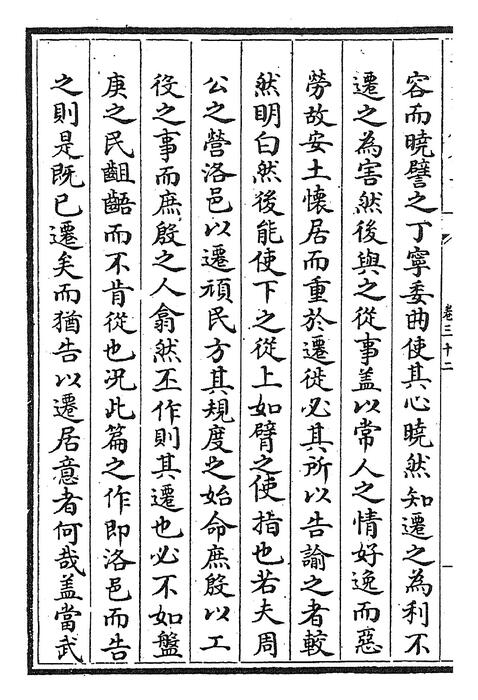 容而曉譬之丁寧委曲使其心曉然知遷之為利不
遷之為害然後與之從事盖以常人之情好逸而惡
勞故安土懷居而重於遷徙必其所以告諭之者較
然明白然後能使下之從上如臂之使指也若夫周
公之營洛邑以遷頑民方其規度之始命庶殷以工
役之事而庶殷之人翕然丕作則其遷也必不如盤
庚之民齟齬而不肯從也况此篇之作即洛邑而告
之則是既已遷矣而猶告以遷居意者何哉盖當武
卷三十二